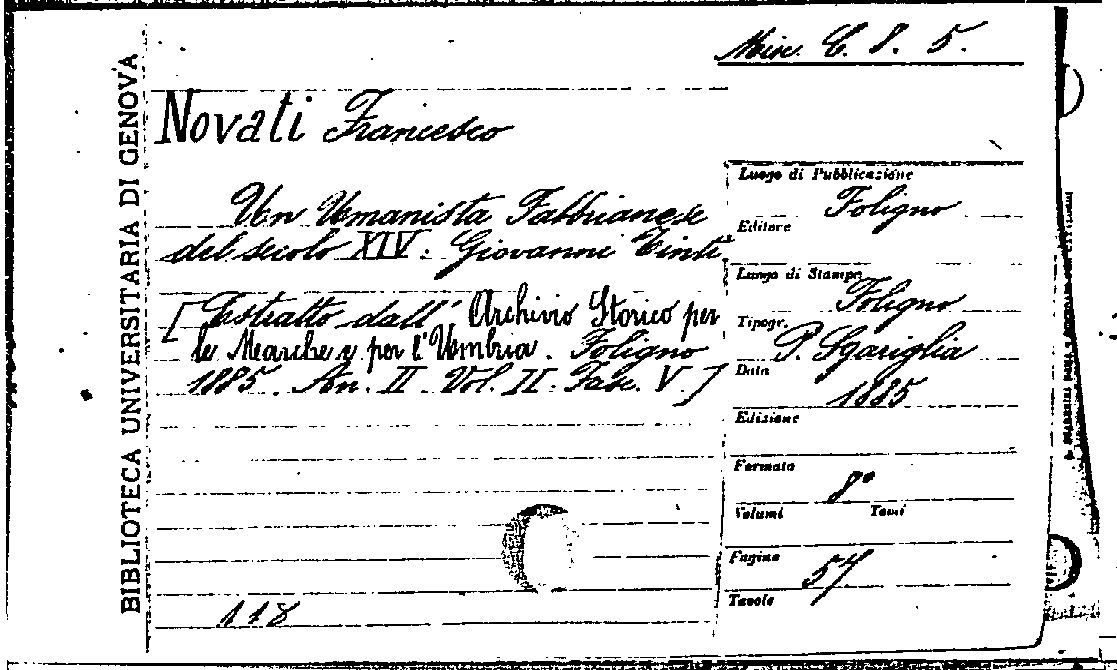 Misc. C. 8. 5.
BIBLIOTECA UNIVERSITARIA DI GENOVA
Novati Francesco
Un Umanista Fabbrianese
del secolo XIV. Giovanni Tinti.
[Estratto dall' Archivio Storico per
le Marche e per l'Umbria. Foligno
1885. An. II. Vol. II. Fasc. V.]
118
Luogo di Pubblicazione
Foligno
Editore
Luogo di Stampa
Foligno
Tipogr.
P. Sgariglia
Data
1885
Edizione
Formato
8°
Volumi Tomi
Pagine
57
Tavole